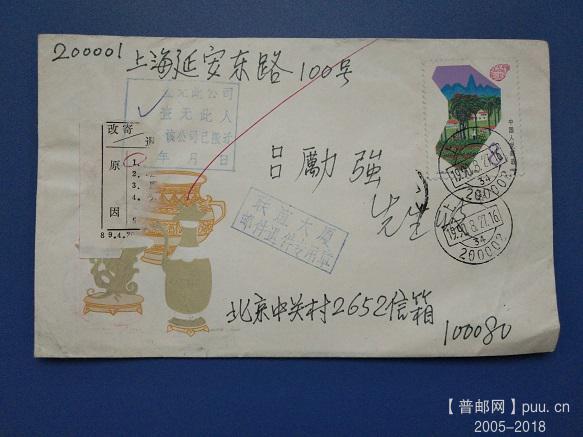 200001
上海延安东路100号
查无此公司
查无此人
该公司已搬迁
年 月 日
改寄
退
原
因
1.
2.
3.
4.
89.4.20
吕勵強
先生
收
联谊大厦
邮件退件专用章
中国人民邮政
1990.8.27.16
34
200002
1990.8.27.16
34
200002
北京中关村2652信箱
100080
【普邮网】puu.cn
2005-2018